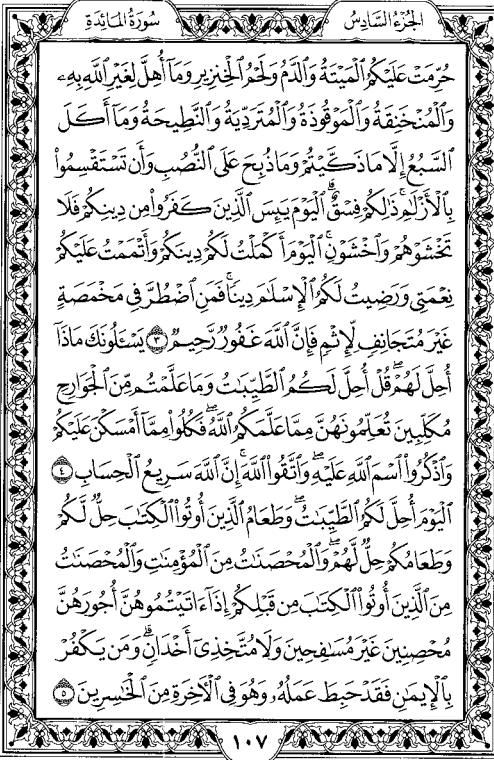 الجُزْءُ السَّادِسُ
سُورَةُ المَائِدَةِ
حُرِّمَتْ عَلَيْكُمُ ٱلْمَيْتَةُ وَٱلدَّمُ وَلَحْمُ ٱلْخِنزِيرِ وَمَآ أُهِلَّ لِغَيْرِ ٱللَّهِ بِهِۦ
وَٱلْمُنْخَنِقَةُ وَٱلْمَوْقُوذَةُ وَٱلْمُتَرَدِّيَةُ وَٱلنَّطِيحَةُ وَمَآ أَكَلَ
ٱلسَّبُعُ إِلَّا مَا ذَكَّيْتُمْ وَمَا ذُبِحَ عَلَى ٱلنُّصُبِ وَأَن تَسْتَقْسِمُوا۟
بِٱلْأَزْلَٰمِ ۚ ذَٰلِكُمْ فِسْقٌ ۗ ٱلْيَوْمَ يَئِسَ ٱلَّذِينَ كَفَرُوا۟ مِن دِينِكُمْ فَلَا
تَخْشَوْهُمْ وَٱخْشَوْنِ ۚ ٱلْيَوْمَ أَكْمَلْتُ لَكُمْ دِينَكُمْ وَأَتْمَمْتُ عَلَيْكُمْ
نِعْمَتِى وَرَضِيتُ لَكُمُ ٱلْإِسْلَٰمَ دِينًا ۚ فَمَنِ ٱضْطُرَّ فِى مَخْمَصَةٍ
غَيْرَ مُتَجَانِفٍ لِّإِثْمٍ فَإِنَّ ٱللَّهَ غَفُورٌ رَّحِيمٌ ٣ يَسْـَٔلُونَكَ مَاذَآ
أُحِلَّ لَهُمْ ۖ قُلْ أُحِلَّ لَكُمُ ٱلطَّيِّبَٰتُ وَمَا عَلَّمْتُم مِّنَ ٱلْجَوَارِحِ
مُكَلِّبِينَ تُعَلِّمُونَهُنَّ مِمَّا عَلَّمَكُمُ ٱللَّهُ ۖ فَكُلُوا۟ مِمَّآ أَمْسَكْنَ عَلَيْكُمْ
وَٱذْكُرُوا۟ ٱسْمَ ٱللَّهِ عَلَيْهِ ۖ وَٱتَّقُوا۟ ٱللَّهَ ۚ إِنَّ ٱللَّهَ سَرِيعُ ٱلْحِسَابِ ٤
ٱلْيَوْمَ أُحِلَّ لَكُمُ ٱلطَّيِّبَٰتُ ۖ وَطَعَامُ ٱلَّذِينَ أُوتُوا۟ ٱلْكِتَٰبَ حِلٌّ لَّكُمْ
وَطَعَامُكُمْ حِلٌّ لَّهُمْ ۖ وَٱلْمُحْصَنَٰتُ مِنَ ٱلْمُؤْمِنَٰتِ وَٱلْمُحْصَنَٰتُ
مِنَ ٱلَّذِينَ أُوتُوا۟ ٱلْكِتَٰبَ مِن قَبْلِكُمْ إِذَآ ءَاتَيْتُمُوهُنَّ أُجُورَهُنَّ
مُحْصِنِينَ غَيْرَ مُسَٰفِحِينَ وَلَا مُتَّخِذِىٓ أَخْدَانٍ ۗ وَمَن يَكْفُرْ
بِٱلْإِيمَٰنِ فَقَدْ حَبِطَ عَمَلُهُۥ وَهُوَ فِى ٱلْءَاخِرَةِ مِنَ ٱلْخَٰسِرِينَ ٥
١٠٧